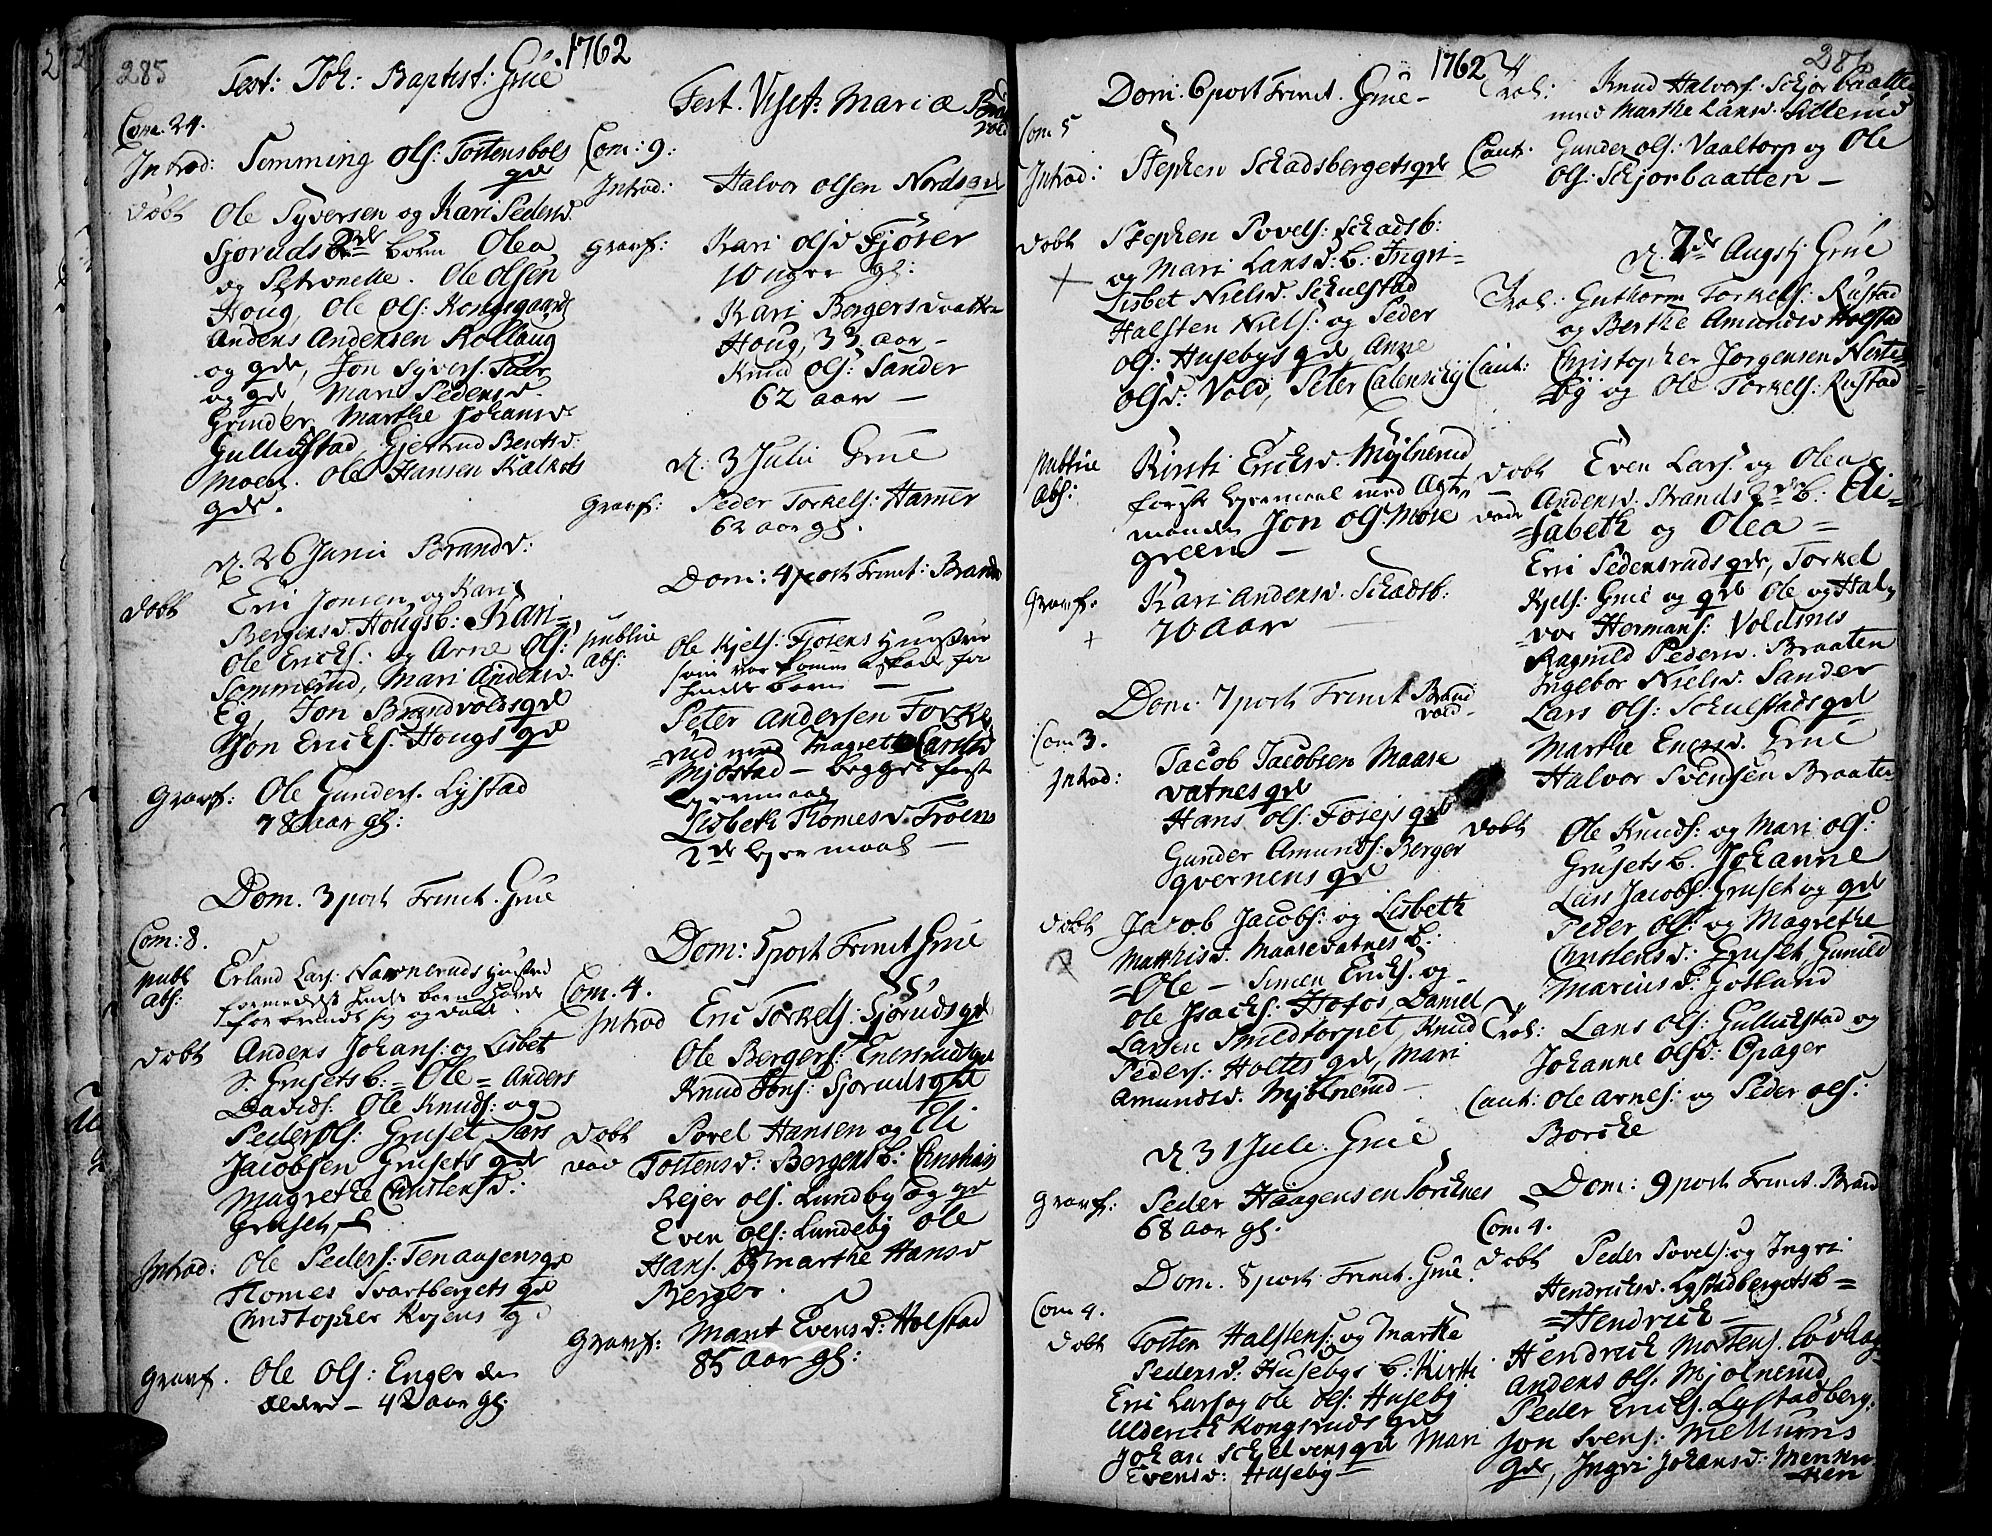 285
1762
Fest: Joh: Baptist: Grue
Com. 24.
Introd: Semming Ols: Tostensbols
qde
Døbt Ole Syversen og Kari Pedersd.
Sjøruds 2de børn Olea
og Petronelle. Ole Olsen
Houg, Ole Ols: Kongsgaard
Anders Andersen Kollaug
og qde, Jon Syvers.
og qde, Mari Pedersd.
Grinder, Marthe Johansd.
Gullichstad Gjertrud Bentsd.
Moen. Ole Hansen Kalnes
qde.
D. 26 Junii Brandv:
Døbt Eric Jonsen og Kari
Bergersd. Hougs b: Kari =
Ole Ericks: og Arne Ols:
Sommerud, Mari Andersd.
Eg, Jon Brandvolds qde
Jon Ericks. Hougs qde
Gravf: Ole Gunders. Lystad
78 aar gl:
Dom. 3 post Trinit. Grue
Com: 8.
publ abs: Erland Lars: Navneruds hustrue
formedelst hendes barn
forbrendte sig og døde
Døbt Anders Johans: og Lisbet
Grusets b: = Ole = Anders
Davids: Ole Knuds: og
Peder Ols: Gruset Lars
Jacobsen Grusets qde
Magrethe Christensd:
Gruset
Introd: Ole Peders: Tenaasens qde
Tomes Svartbergets qde
Christopher Kojens q.
Gravf. Ole Ols: Enger den
ældre – 42 aar gl:
Fest. Visit: Mariæ Brand
vold
Com: 9:
Introd: Halvor Olsen Nords qde
Gravf: Kari Olsd Fjøser
10 uger gl:
Kari Bergersdaatter
Houg, 33 aar –
Knud Ols: Sander
62 aar –
D. 3 Julii Grue
Gravf: Peder Torkels: Hamer
62 aar gl.
Dom: 4 post Trinit: Brandv
publice abs: Ole Kjels: Fjøsens hustrue
som var kommen til skade for
hendes barn –
Peter Andersen Torke
= rud med Magrethe Larsd
Mjøstad – begges første
lejermaal
Lisbeth Tomesd. Troen
2de lejermaal –
Dom: 5 post Trinit Grue
Com. 4.
Introd Eric Torkels: Sjøruds qde
Ole Bergers: Enersruds qde
Knud Jons: Sjøruds qde
Døbt Povel Hansen og Eli
Tostensd: Bergers b: Christian
Rejer Ols. Lundby og qde
Even Ols: Lundeby Ole
Hans. og Marthe Hansd
Berger.
Gravf: Marit Evensd: Holstad
85 aar gl:
1762
286
Dom. 6 post Trinit. Grue –
Com 5
Introd: Stephen Schadsbergets qde
Døbt Stephen Povels: Schadsb:
og Mari Larsd: b: Ingri =
Lisbet Nielsd. Schulstad
Halsten Niels: og Peder
Ols: Husebys qde Anne
Olsd: Vold, Peter Calensky
publice abs: Kirsti Ericksd. Mylnerud
første lejermaal med
manden Jon Ols: Mose
green –
Gravf. Kari Andersd. Schadsb:
70 aar –
Dom. 7 post Trinit Brand
vold
Com 3.
Introd: Jacob Jacobsen Maase
vatnes qde
Hans Ols: Fosejs qde
Gunder Amunds: Berger
qvernens qde
Døbt Jacob Jacobs: og Lisbeth
Matthisd. Maasevatnes b:
= Ole – Simen Ericks. og
Ole Jsachs: Hofos Daniel
Larsen Smedtorpet, Knud
Peders: Holtes qde, Mari
Amundsd. Mylnerud –
D. 31 Jule. Grue
Gravf: Peder Haagensen Torcknes
68 aar gl.
Dom. 8 post Trinit. Grue.
Com 4.
Døbt Tosten Halstens: og Marthe
Pedersd: Husebys b: Kirsti
Eric Lars og Ole Ols: Huseby
Ulderich Kongsruds qde
Johan Schelvens qde Mari
Evensd: Huseby –
Trol: Knud Halvors. Schjorbaatten
med Marthe Larsd. Lillerud
Caut. Gunder Ols: Vaaltorp og Ole
Ols: Schjorbaatten –
D. 7de Augstj Grue
Trol: Guthorm Torkels: Rustad
og Berthe Amundsd Holstad
Caut: Christopher Jørgensen Neste
by og Ole Torkels: Rustad
Døbt Even Lars. og Olea
Andersd. Strands 2de b: Eli =
= sabeth og Olea =
Eric Pedersruds qde, Torkel
Kjels: Grue og qde Ole og Hal
= vor Hermans: Voldsnes
Ragnild Pedersd. Braaten
Ingebor Nielsd. Sander
Lars Ols: Schulstads qde
Marthe Enersd. Grue
Halvor Svensen Braaten
Døbt Ole Knuds: og Mari Ols:
Grusets b. Johanne
Lars Jacobs: Gruset og qde
Peder Ols: og Magrethe
Christensd: Gruset, Gunild
Mariusd: Gotland
Trol: Lars Ols: Gullichstad og
Johanne Olsd: Opager
Caut: Ole Arnes: og Peder Ols:
Borcke
Dom: 9 post Trinit. Brand
Com 4.
Døbt Peder Povels: og Ingri
Hendricksd. Lystadbergets b =
= Hendrick –
Hendrick Mortens. Løvhaug
Anders Ols. Mjolnerud
Peder Ericks. Lystadberg.
Jon Svens: Mellums
qde, Ingri Johansd: Menken
= ken